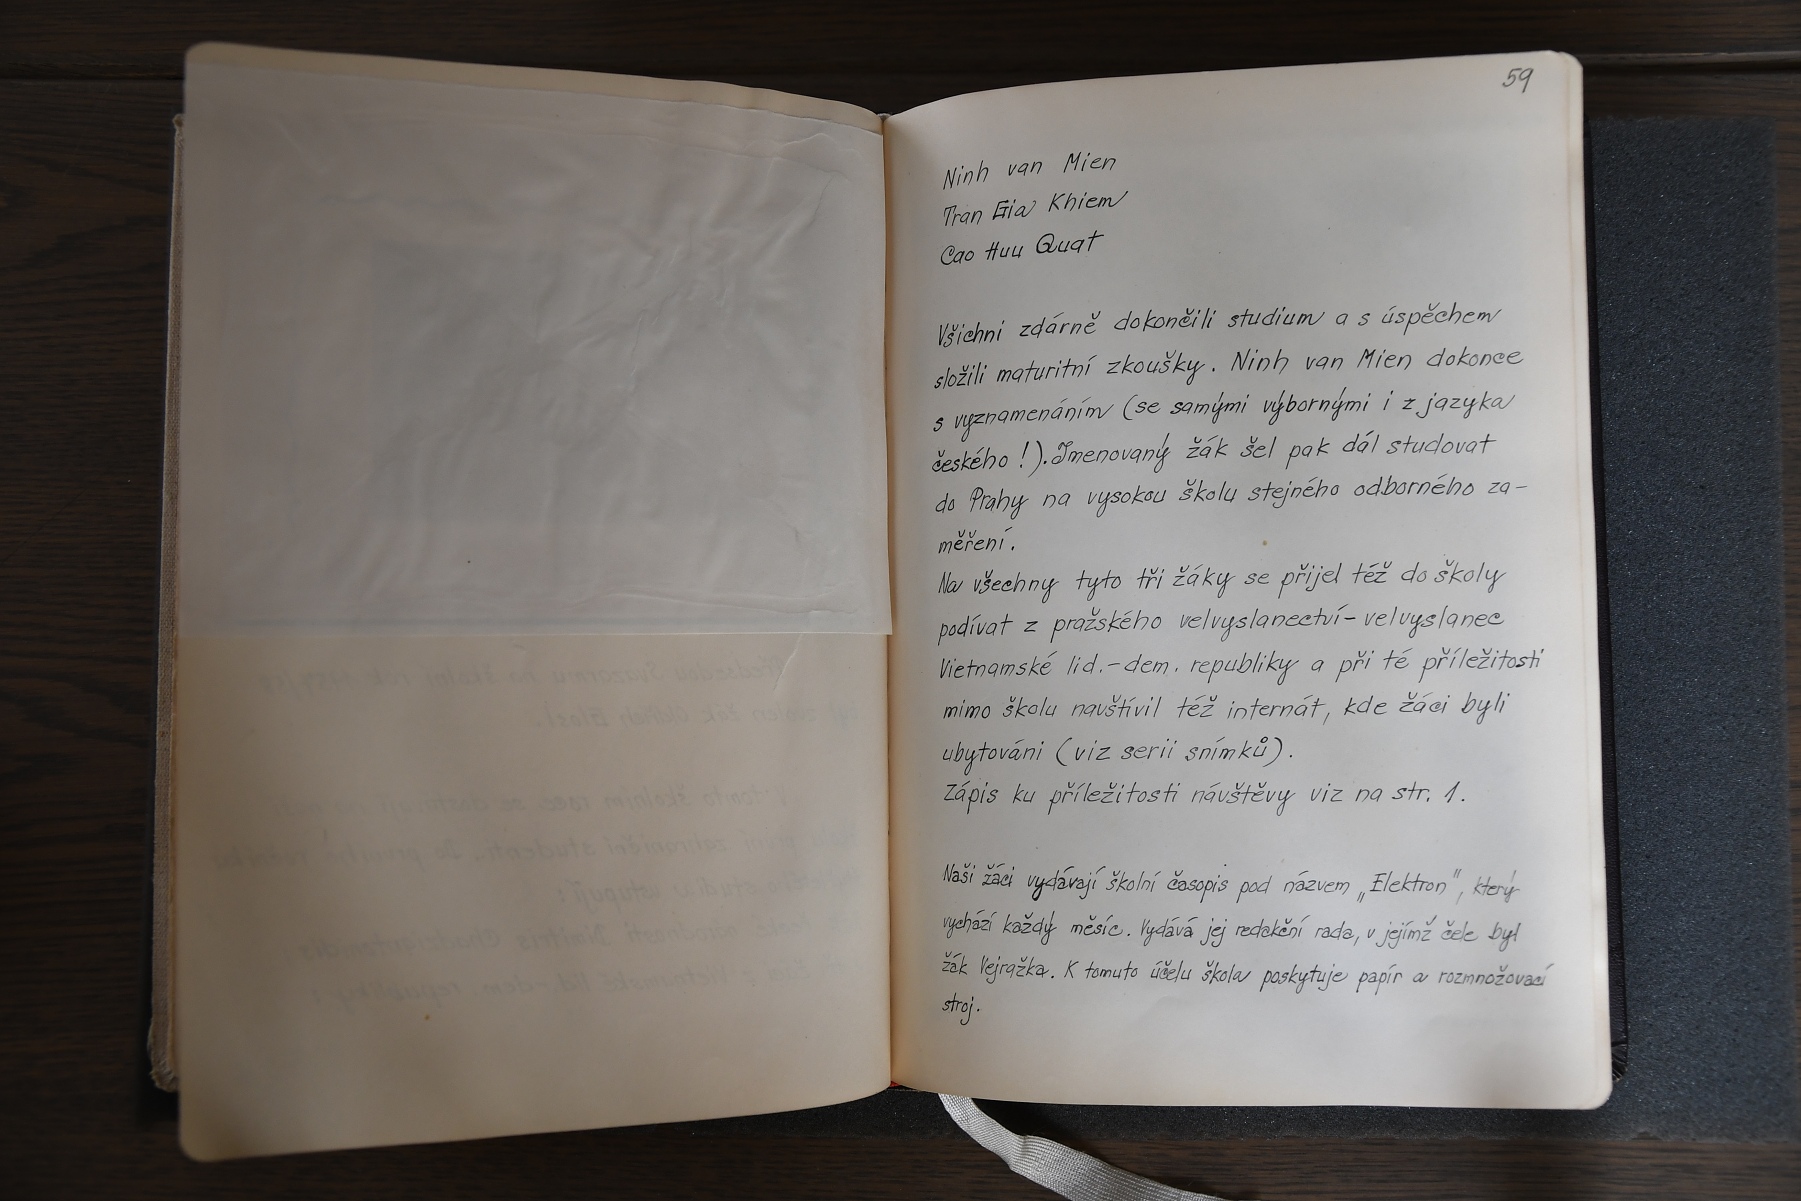 59
Ninh van Mien
Tran Gia Khiem
Cao Huu Quat
Všichni zdárně dokončili studium a s úspěchem
složili maturitní zkoušky. Ninh van Mien dokonce
s vyznamenáním (se samými výbornými i z jazyka
českého!). Jmenovaný žák šel pak dál studovat
do Prahy na vysokou školu stejného odborného za-
měření.
Na všechny tyto tři žáky se přijel též do školy
podívat z pražského velvyslanectví - velvyslanec
Vietnamské lid.-dem. republiky a při té příležitosti
mimo školu navštívil též internát, kde žáci byli
ubytováni (viz serii snímků).
Zápis ku příležitosti návštěvy viz na str. 1.
Naši žáci vydávají školní časopis pod názvem „Elektron", který
vychází každý měsíc. Vydává jej redakční rada, v jejímž čele byl
žák Vejražka. K tomuto účelu škola poskytuje papír a rozmnožovací
stroj.